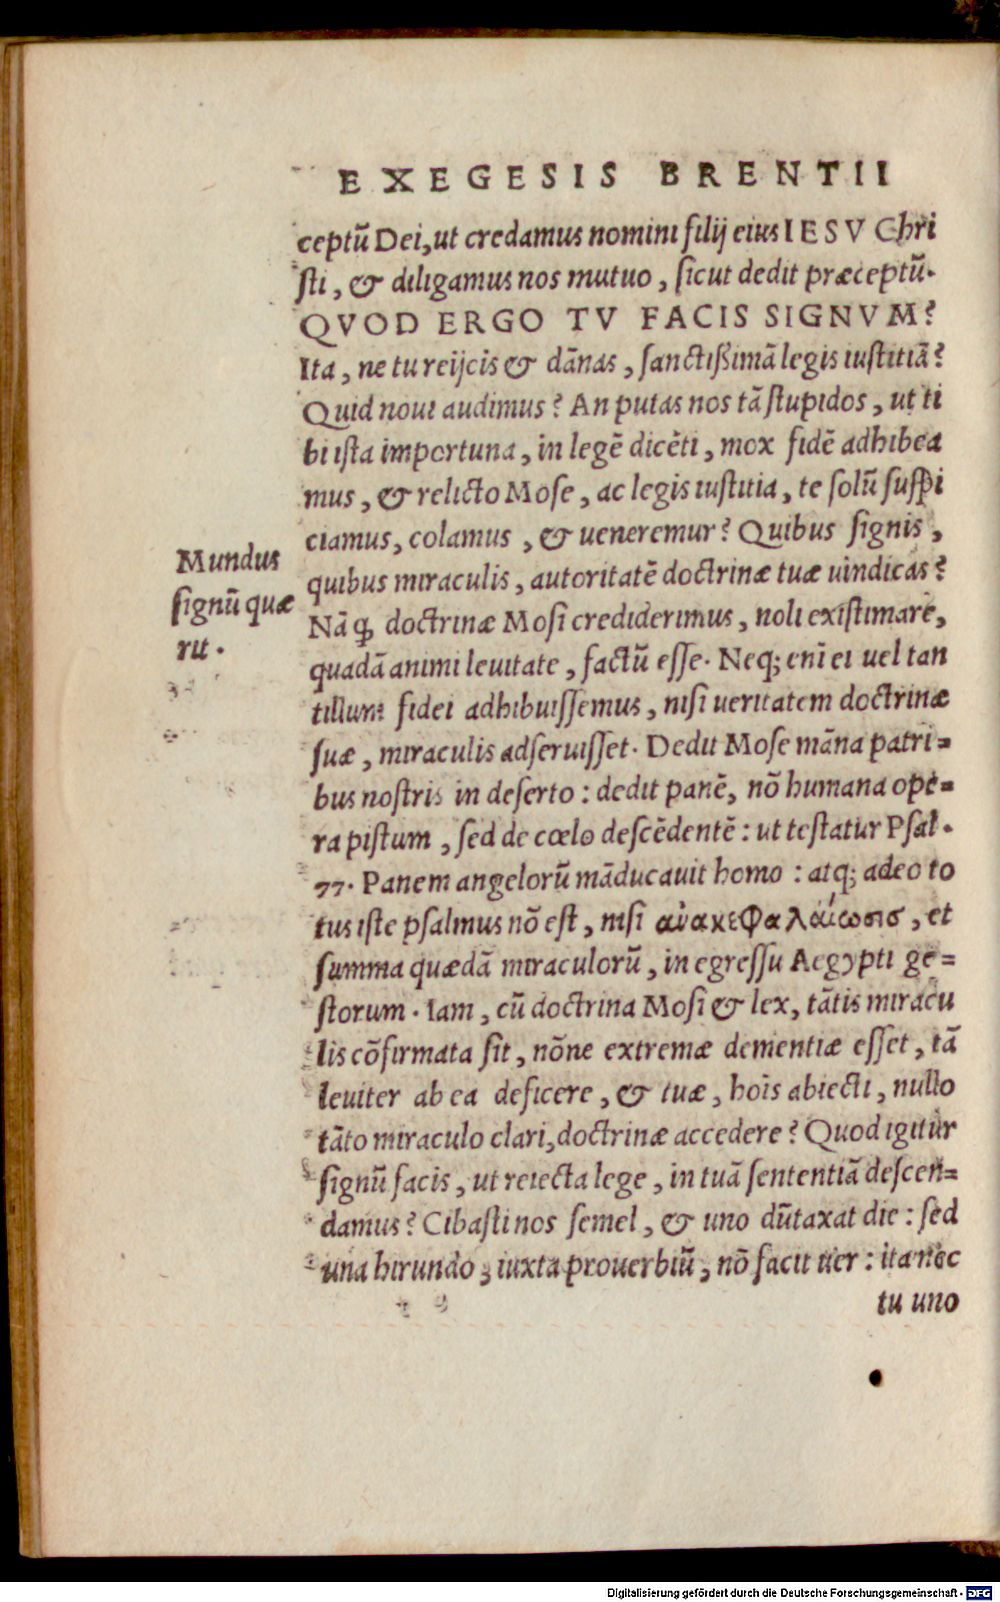 EXEGESIS BRENTII
ceptũ Dei, ut credamus nomini filij eius IESV Chri
sti, & diligamus nos mutuo, sicut dedit præceptũ.
QVOD ERGO TV FACIS SIGNVM?
Ita, ne tu reijcis & dãnas, sanctißimã legis iustitiã?
Quid noui audimus? An putas nos tã stupidos, ut ti
bi ista importuna, in legẽ dicẽti, mox fidẽ adhibea
mus, & relicto Mose, ac legis iustitia, te solũ suspi
ciamus, colamus, & ueneremur? Quibus signis,
quibus miraculis, autoritatẽ doctrinæ tuæ uindicas?
Nã ꝙ doctrinæ Mosi crediderimus, noli existimare,
quadã animi leuitate, factũ esse. Neq; enĩ ei uel tan
tillum fidei adhibuissemus, nisi ueritatem doctrinæ
suæ, miraculis adseruisset. Dedit Mose mãna patri=
bus nostris in deserto: dedit panẽ, nõ humana ope=
ra pistum, sed de cœlo descẽdentẽ: ut testatur Psal.
77. Panem angelorũ mãducauit homo: atq; adeo to
tus iste psalmus nõ est, nisi ἀνακεφαλαίωσις, et
summa quædã miraculorũ, in egressu Aegypti ge=
storum. Iam, cũ doctrina Mosi & lex, tãtis miracu
lis cõfirmata sit, nõne extremæ dementiæ esset, tã
leuiter ab ea deficere, & tuæ, hoĩs abiecti, nullo
tãto miraculo clari, doctrinæ accedere? Quod igitur
signũ facis, ut reiecta lege, in tuã sententiã descen=
damus? Cibasti nos semel, & uno dũtaxat die: sed
una hirundo, iuxta prouerbiũ, nõ facit uer: ita nec
tu uno
Mundus
signũ quæ
rit.
Digitalisierung gefördert durch die Deutsche Forschungsgemeinschaft - DFG